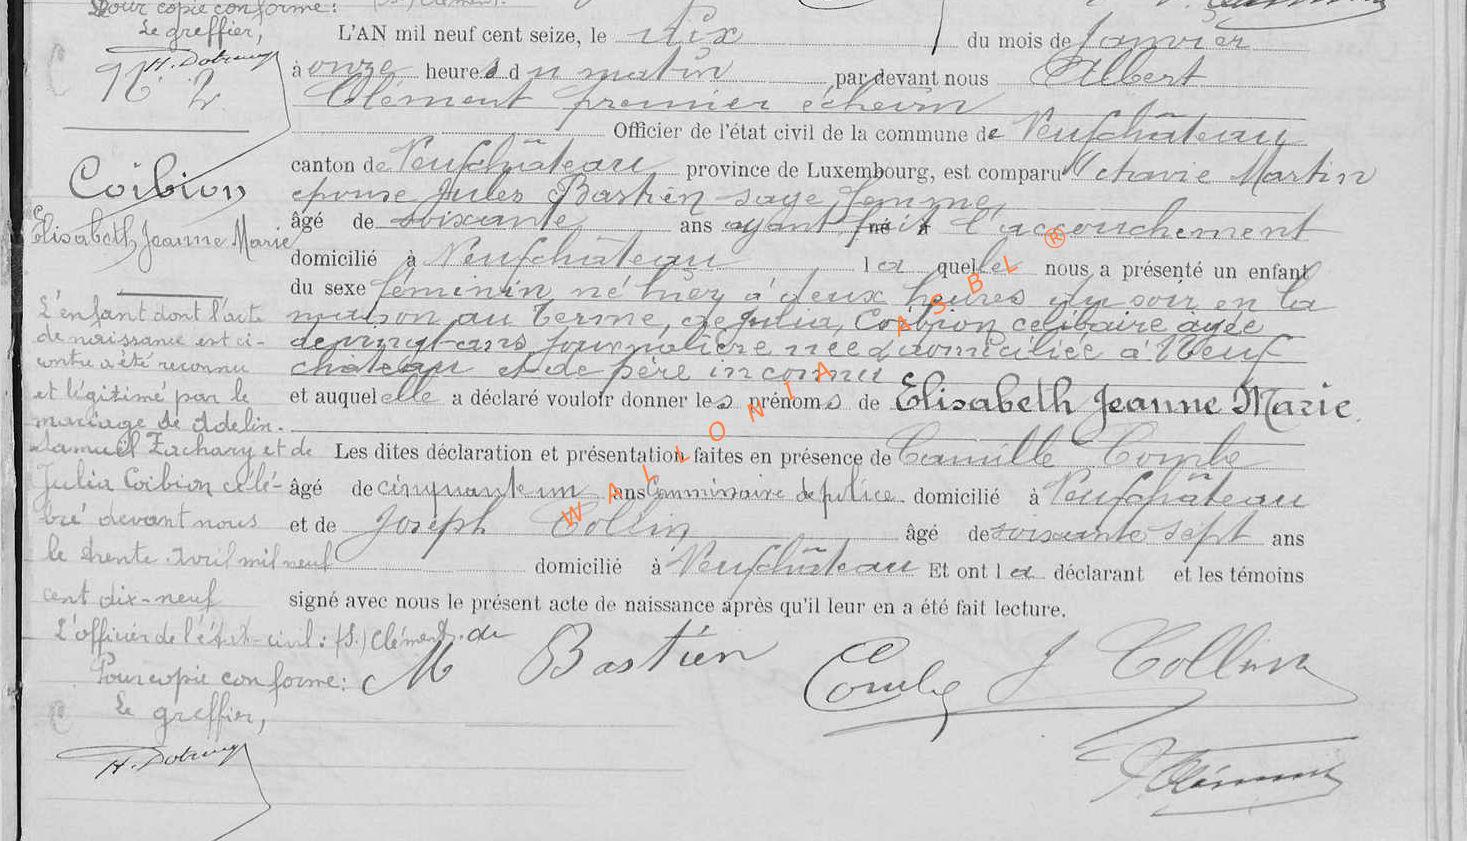 Pour copie conforme:
Le greffier,
H. Dobruy
N° 2
Coibion
Elisabeth Jeanne Marie
L'enfant dont l'acte
de naissance est ci-
contre a été reconnu
et légitimé par le
mariage de Adelin-
Samuël Zachary et de
Julia Coibion célé-
bré devant nous
le trente Avril mil neuf
cent dix-neuf
L'officier de l'état-civil: (S.) Clément.
Pour copie conforme:
Le greffier,
L'AN mil neuf cent seize, le dix du mois de Janvier
à onze heures du matin par devant nous Albert
Clément premier échevin
Officier de l'état civil de la commune de Neufchâteau
canton de Neufchâteau province de Luxembourg, est comparu Octavie Martin
épouse Jules Bastien sage femme,
âgé de soixante ans ayant fait l'accouchement
domicilié à Neufchâteau la quelle nous a présenté un enfant
du sexe féminin né hier à deux heures du soir en la
maison au Terme, de Julia, Coibion célibaire âgée
de vingt ans journalière née & domiciliée à Neuf
château et de père inconnu
et auquel elle a déclaré vouloir donner les prénoms de Elisabeth Jeanne Marie.
Les dites déclaration et présentation faites en présence de Camille Combe
âgé de cinquante un ans Commissaire de police domicilié à Neufchâteau
et de Joseph Collin âgé de soixante sept ans
domicilié à Neufchâteau Et ont la déclarant et les témoins
signé avec nous le présent acte de naissance après qu'il leur en a été fait lecture.
de M Bastien
Combe
J Collin
Clément
WALLONIA ASBL ®